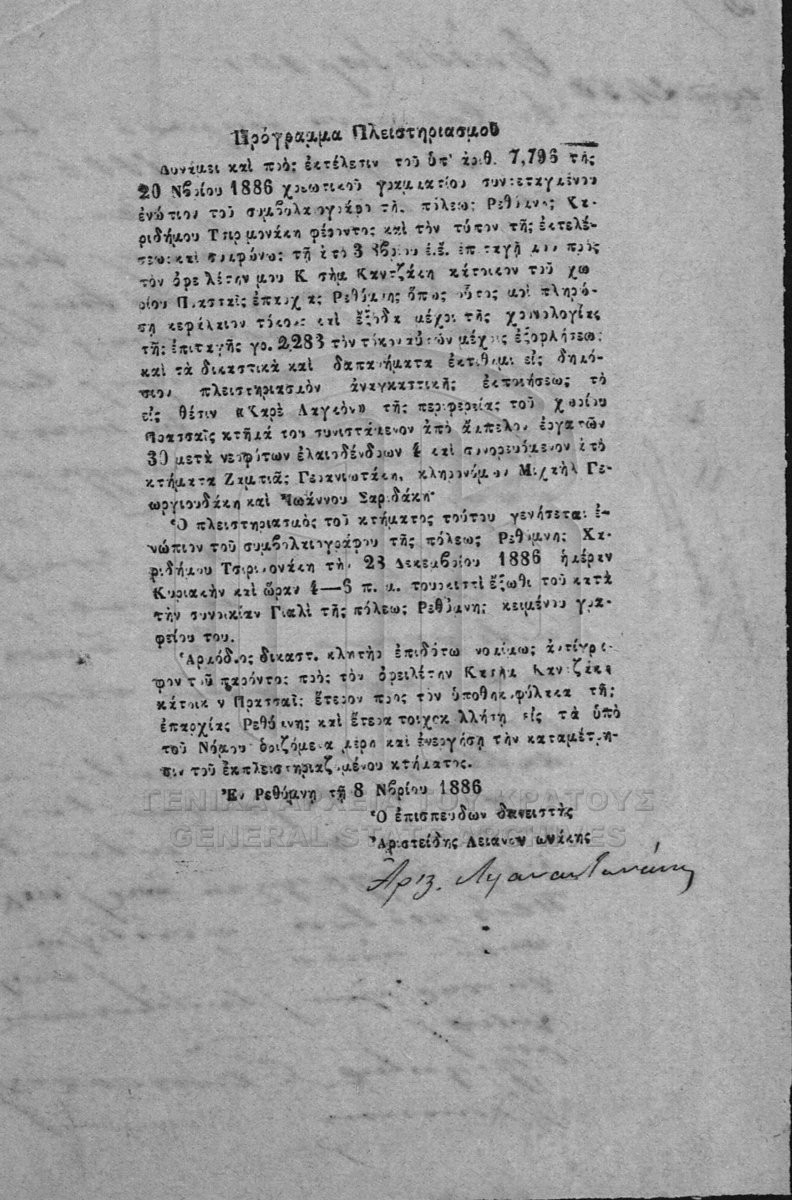 Πρόγραμμα Πλειστηριασμοῦ
Δυνάμει καὶ πρὸς ἐκτέλεσιν τοῦ ὑπ' ἀριθ. 7,796 τῆς
20 Νβρίου 1886 χρεωτικοῦ γραμματίου συντεταγμένου
ἐνώπιον τοῦ συμβολαιογράφο τῆς πόλεως Ρεθύμνης Χα-
ριδήμου Τσιριμονάκη φέροντος καὶ τὸν τύπον τῆς ἐκτελέ-
σεως καὶ συμφώνως τῇ ἀπὸ 3 ἐ.ἔ. ἐπιταγῇ μου πρὸς
τὸν ὀφειλέτην μου Καντζάκη κάτοικον τοῦ χω
ρίου ἐπαρχίας Ρεθύμνης ὅπως οὗτος μοὶ πληρώ-
σῃ κεφάλαιον τόκους καὶ ἔξοδα μέχρι τῆς χρονολογίας
τῆς ἐπιταγῆς γρ. 2,283 τὸν τόκον αὐτῶν μέχρις ἐξοφλήσεως
καὶ τὰ δικαστικὰ καὶ δαπανήματα ἐκτίθημι εἰς δημό-
σιον πλειστηριασμὸν ἀναγκαστικῆς ἐκποιήσεως τὸ
εἰς θέσιν «Χαρὲ Λαγκόν» τῆς περιφερείας τοῦ χωρίου
Πρασσαῖς κτῆμά του συνιστάμενον ἀπὸ ἄμπελον ἐργατῶν
30 μετὰ νεοφύτων ἐλαιοδένδρων 4 καὶ συνορευόμενον ἀπὸ
κτήματα Ζαμπιᾶς κληρονόμων Μιχαὴλ Γε-
ωργιουδάκη καὶ Ἰωάννου Σαριδάκη·
Ὁ πλειστηριασμὸς τοῦ κτήματος τούτου γενήσεται ἐ-
νώπιον τοῦ συμβολαιογράφου τῆς πόλεως Ρεθύμνης Χα-
ριδήμου Τσιριμονάκη τὴν 28 Δεκεμβρίου 1886 ἡμέραν
Κυριακὴν καὶ ὥραν 4—6 π. μ. τουρκιστὶ ἔξωθι τοῦ κατὰ
τὴν συνοικίαν Γιαλὶ τῆς πόλεως Ρεθύμνης κειμένου γρα-
φείου του.
Ἁρμόδιος δικαστ. κλητὴρ ἐπιδότω νομίμως ἀντίγρα-
φον τοῦ παρόντος πρὸς τὸν ὀφειλέτην Καντζάκη
κάτοικον Πρασσαῖς ἕτερον πρὸς τὸν ὑποθηκοφύλακα τῆς
ἐπαρχίας Ρεθύμνης καὶ ἕτερα τοιχοκολλήσῃ εἰς τὰ ὑπὸ
τοῦ Νόμου ὁριζόμενα μέρη καὶ ἐνεργήσῃ τὴν καταμέτρη-
σιν τοῦ ἐκπλειστηριαζομένου κτήματος.
Ἐν Ρεθύμνῃ τῇ 8 Νβρίου 1886
Ὁ ἐπισπεύδων δανειστὴς
Ἀριστείδης
Ἀρις.
ΓΕΝΙΚΑ ΑΡΧΕΙΑ ΤΟΥ ΚΡΑΤΟΥΣ
GENERAL STATE ARCHIVES